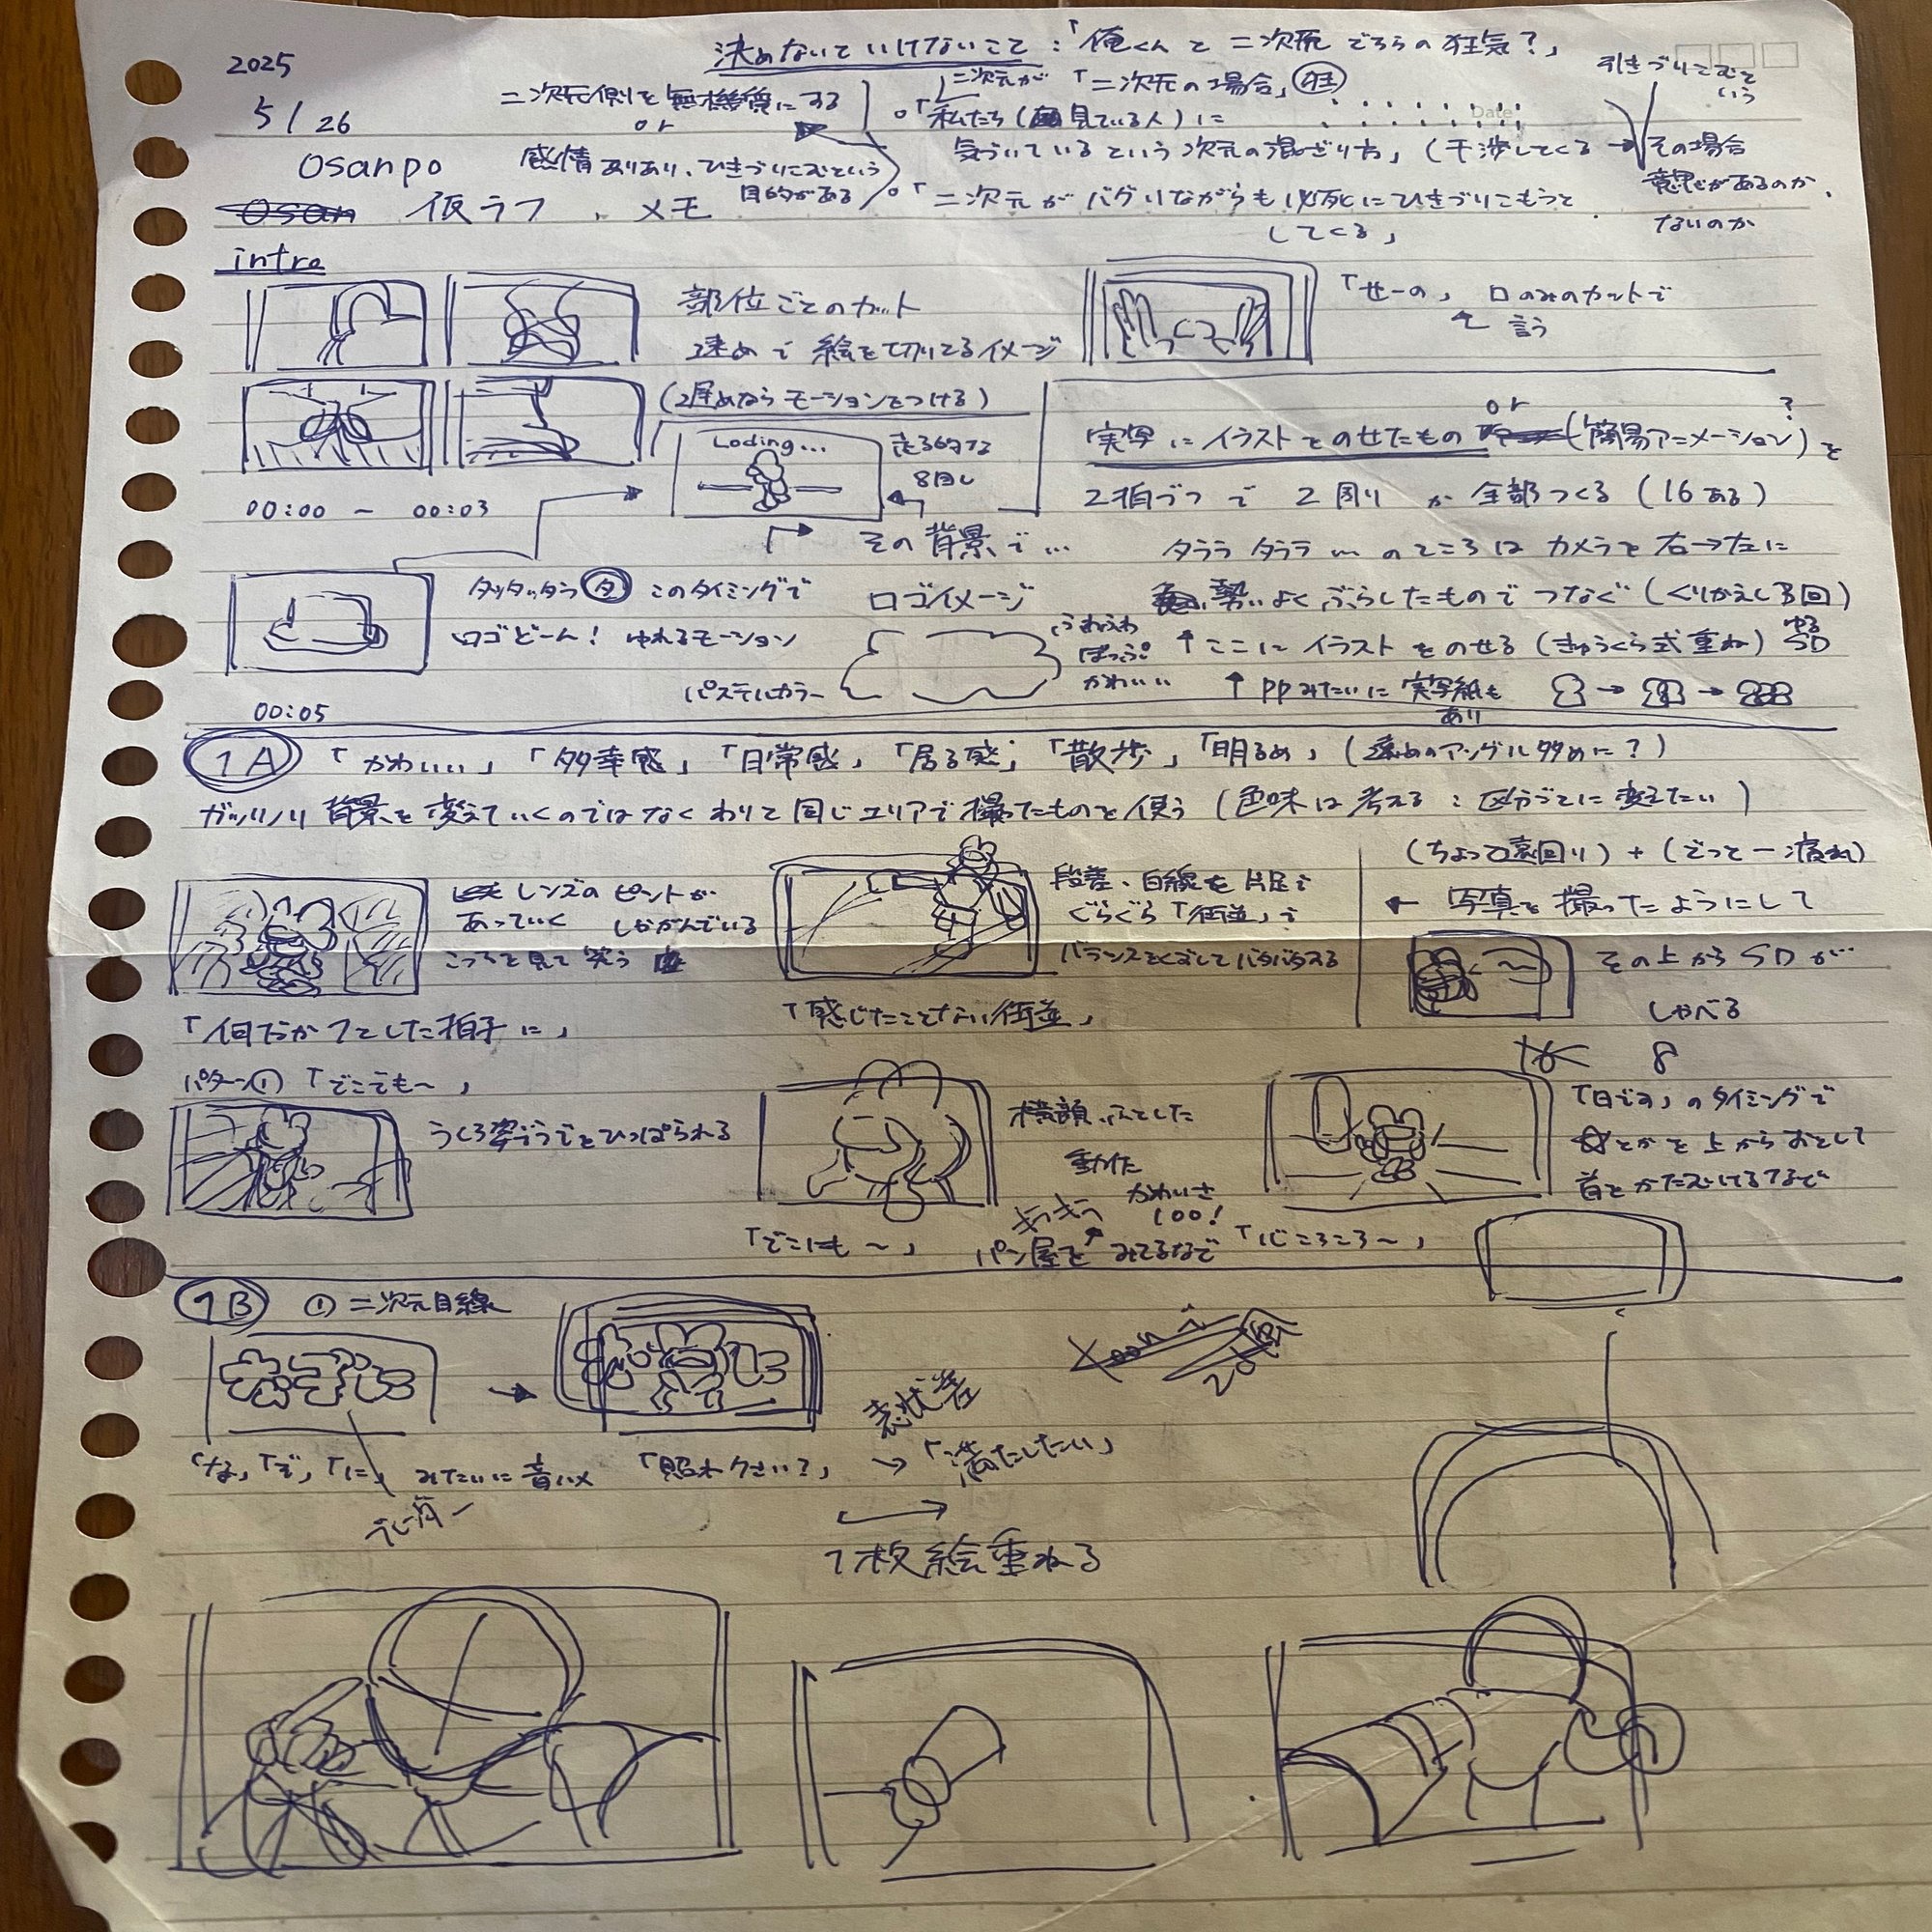 2025
5/26
osanpo
仮ラフ、メモ
決めないといけないこと:「俺くんと二次元 どちらの狂気?」
二次元側を無機質にする
or
感情ありあり、ひきづりこむという
目的がある
二次元が「二次元の場合」
。「私たち(見ている人)に
気づいているという次元の混ざり方」(干渉してくる→
。「二次元がバグりながらも必死にひきづりこもうと
してくる」
引きづりこむと
いう
その場合
意思があるのか、
ないのか
Date
intro
部位ごとのカット
速めで絵を切りてるイメージ
(遅めならモーションをつける)
「せーの」口のみのカットで
言う
00:00 ~ 00:03
Loding...
走る的な
8回し
その背景で…
実写にイラストをのせたもの or (簡易アニメーション)を
?
2拍づつで2周りか全部つくる(16ある)
タララ タララ … のところはカメラを右→左に
勢いよくぶらしたものでつなぐ(くりかえし3回)
↑ここにイラストをのせる(きゅうくら式重ね)
ゆる
SD
↑ppみたいに実写紙も
あり
タッタッタラ タ このタイミングで
ロゴどーん! ゆれるモーション
00:05
ロゴイメージ
ふわふわ
かわいい
パステルカラー
1A 「かわいい」「多幸感」「日常感」「居る感」「散歩」「明るめ」(遠めのアングル多めに?)
ガッツリ背景を変えていくのではなくわりと同じエリアで撮ったものを使う(色味は考える:区分ごとに変えたい)
レンズのピントが
あっていく しゃがんでいる
こっちを見て笑う
「何だかフとした拍子に」
段差、白線を片足で
ぐらぐら「街並」で
バランスをくずしてバタバタする
「感じたことない街並」
← 写真を撮ったようにして
その上からSDが…
しゃべる
8
パターン①「どこでも~」
うしろ姿でうでをひっぱられる
横顔、ふとした
動作
かわいさ
100!
「どこにも~」
パン屋をみてるなど
「日です」のタイミングで
☆とかを上からおとして
首をかたむけるなど
「心ころころ~」
1B ①二次元目線
なでに
「な」「で」「に」みたいに音ハメ
「照れクさい?」→「満たしたい」
1枚絵重ねる